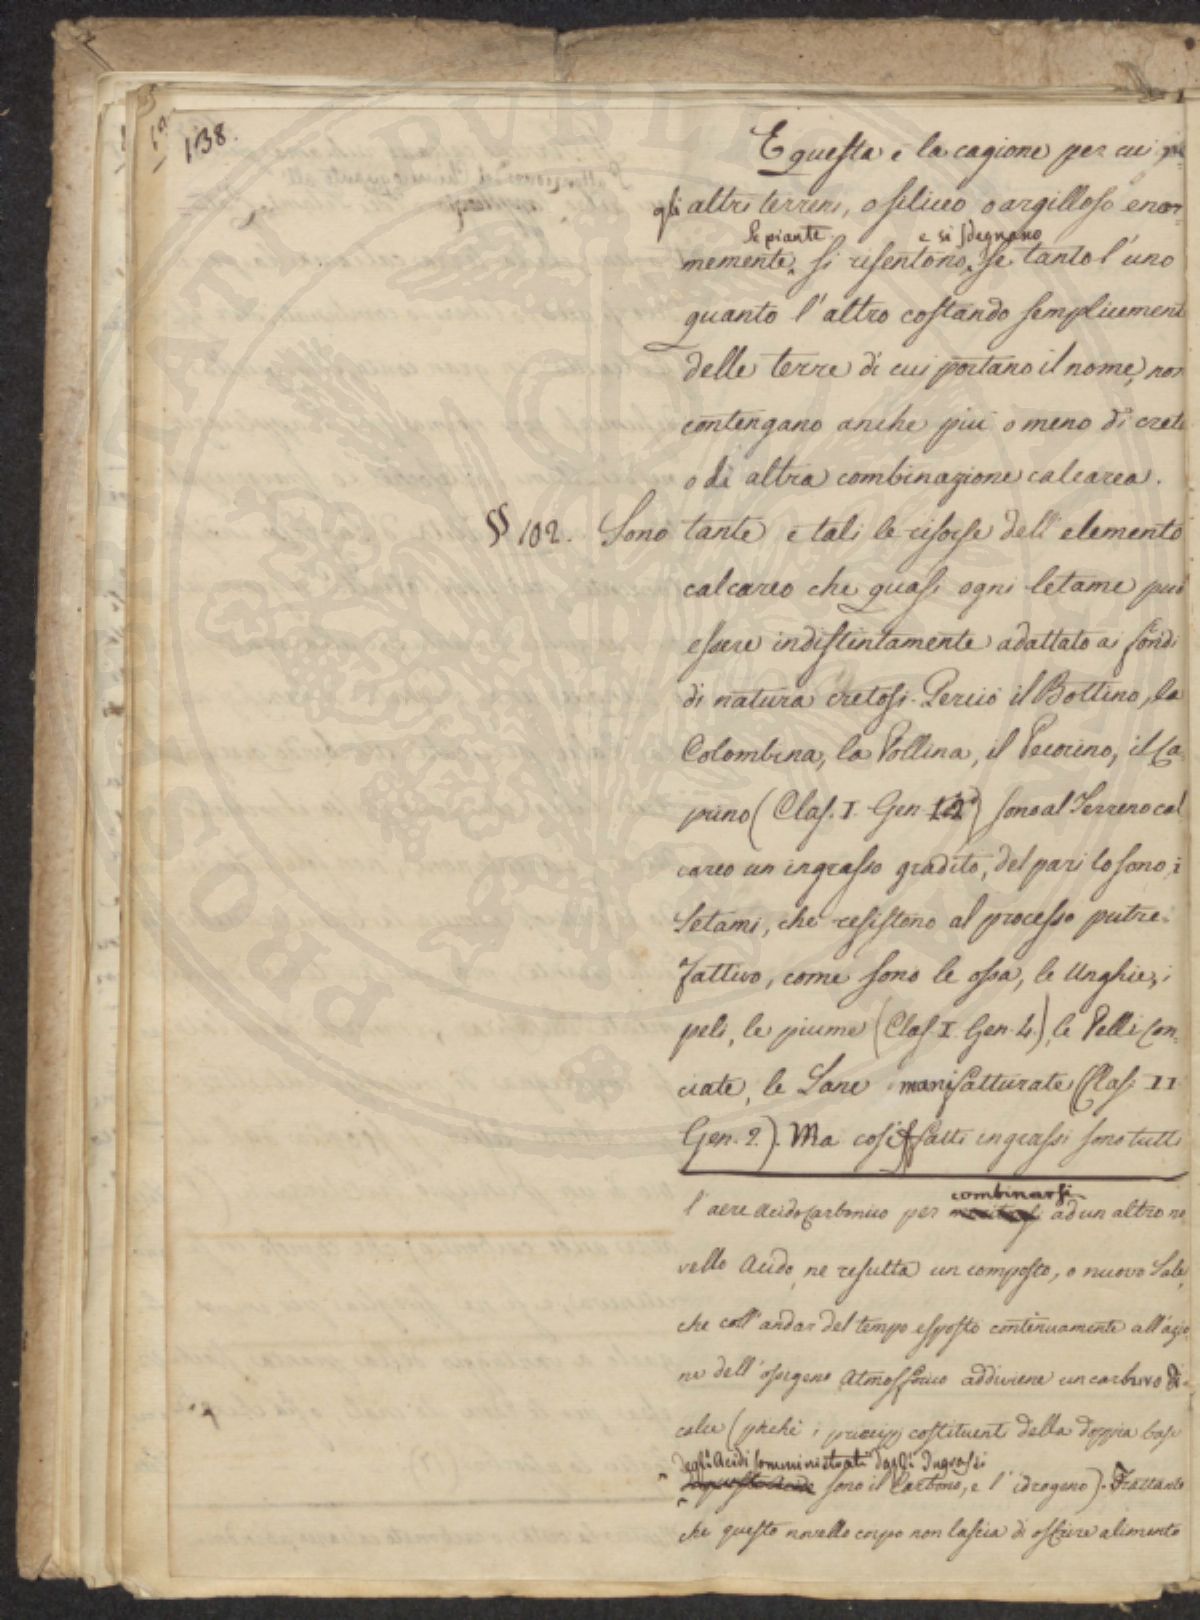 138.
E questa è la cagione per cui
gli altri terreni, o siliceo o argilloso enor=
le piante e si sdegnano
memente, si risentono, se tanto l'uno
quanto l'altro costando semplicement
delle terre di cui portano il nome, non
contengano anche più o meno di creta
o di altra combinazione calcarea.
§§ 102. Sono tante e tali le risorse dell'elemento
calcareo che quasi ogni letame può
essere indistintamente adattato ai fondi
di natura cretosi. Perciò il Bottino, la
Colombina, la Pollina, il Pecorino, il Ca
prino (Clas. I. Gen. ) sono al Terreno cal
careo un ingrasso gradito, del pari lo sono i
Letami, che resistono al processo putre=
fattivo, come sono le ossa, le Unghie, i
peli, le piume (Clas. I. Gen. 4.), le Pelli Con=
ciate, le Lane manifatturate (Clas. II
Gen. 2.). Ma così fatti ingrassi sono tutti
combinarsi
l'aere Acido Carbonico per ad un altro no
vello Acido, ne resulta un composto, o nuovo Sale,
che coll'andar del tempo esposto continuamente all'azio
ne dell'ossigeno Atmosferico addiviene un carburo di
calce (perchè i principj costituenti della doppia base
degli Acidi somministrati dagli Ingrassi
di questo Acido sono il Carbono, e l'idrogeno). Frattanto
che questo novello corpo non lascia di offrire alimento